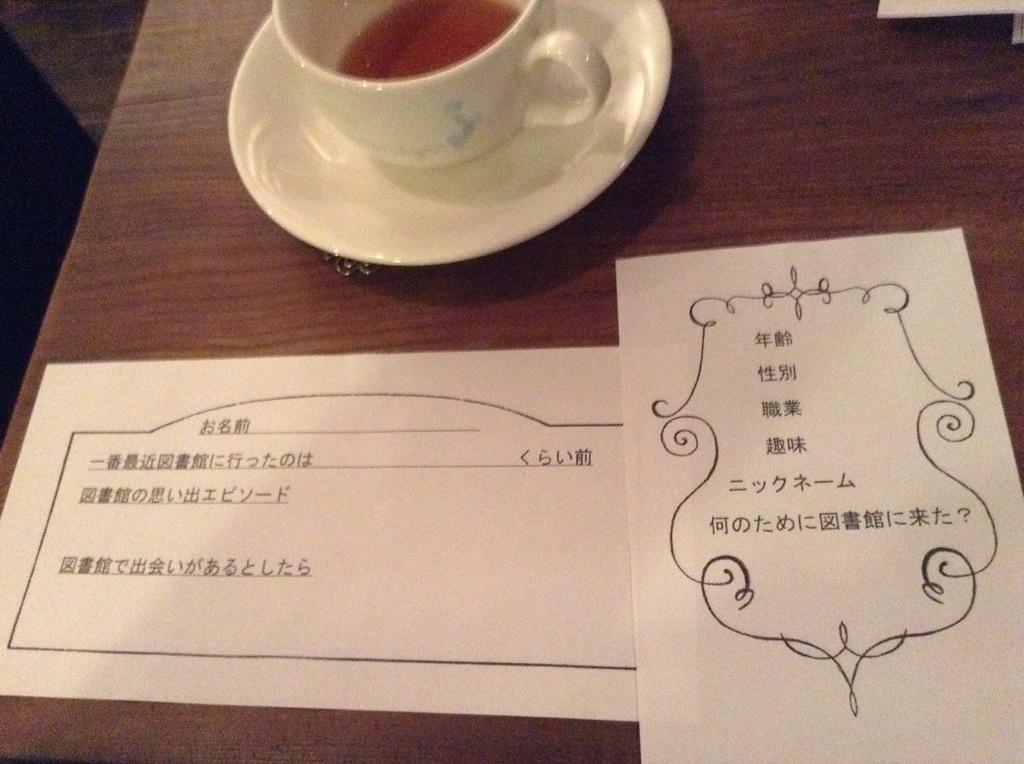 お名前
一番最近図書館に行ったのは くらい前
図書館の思い出エピソード
図書館で出会いがあるとしたら
年齢
性別
職業
趣味
ニックネーム
何のために図書館に来た？